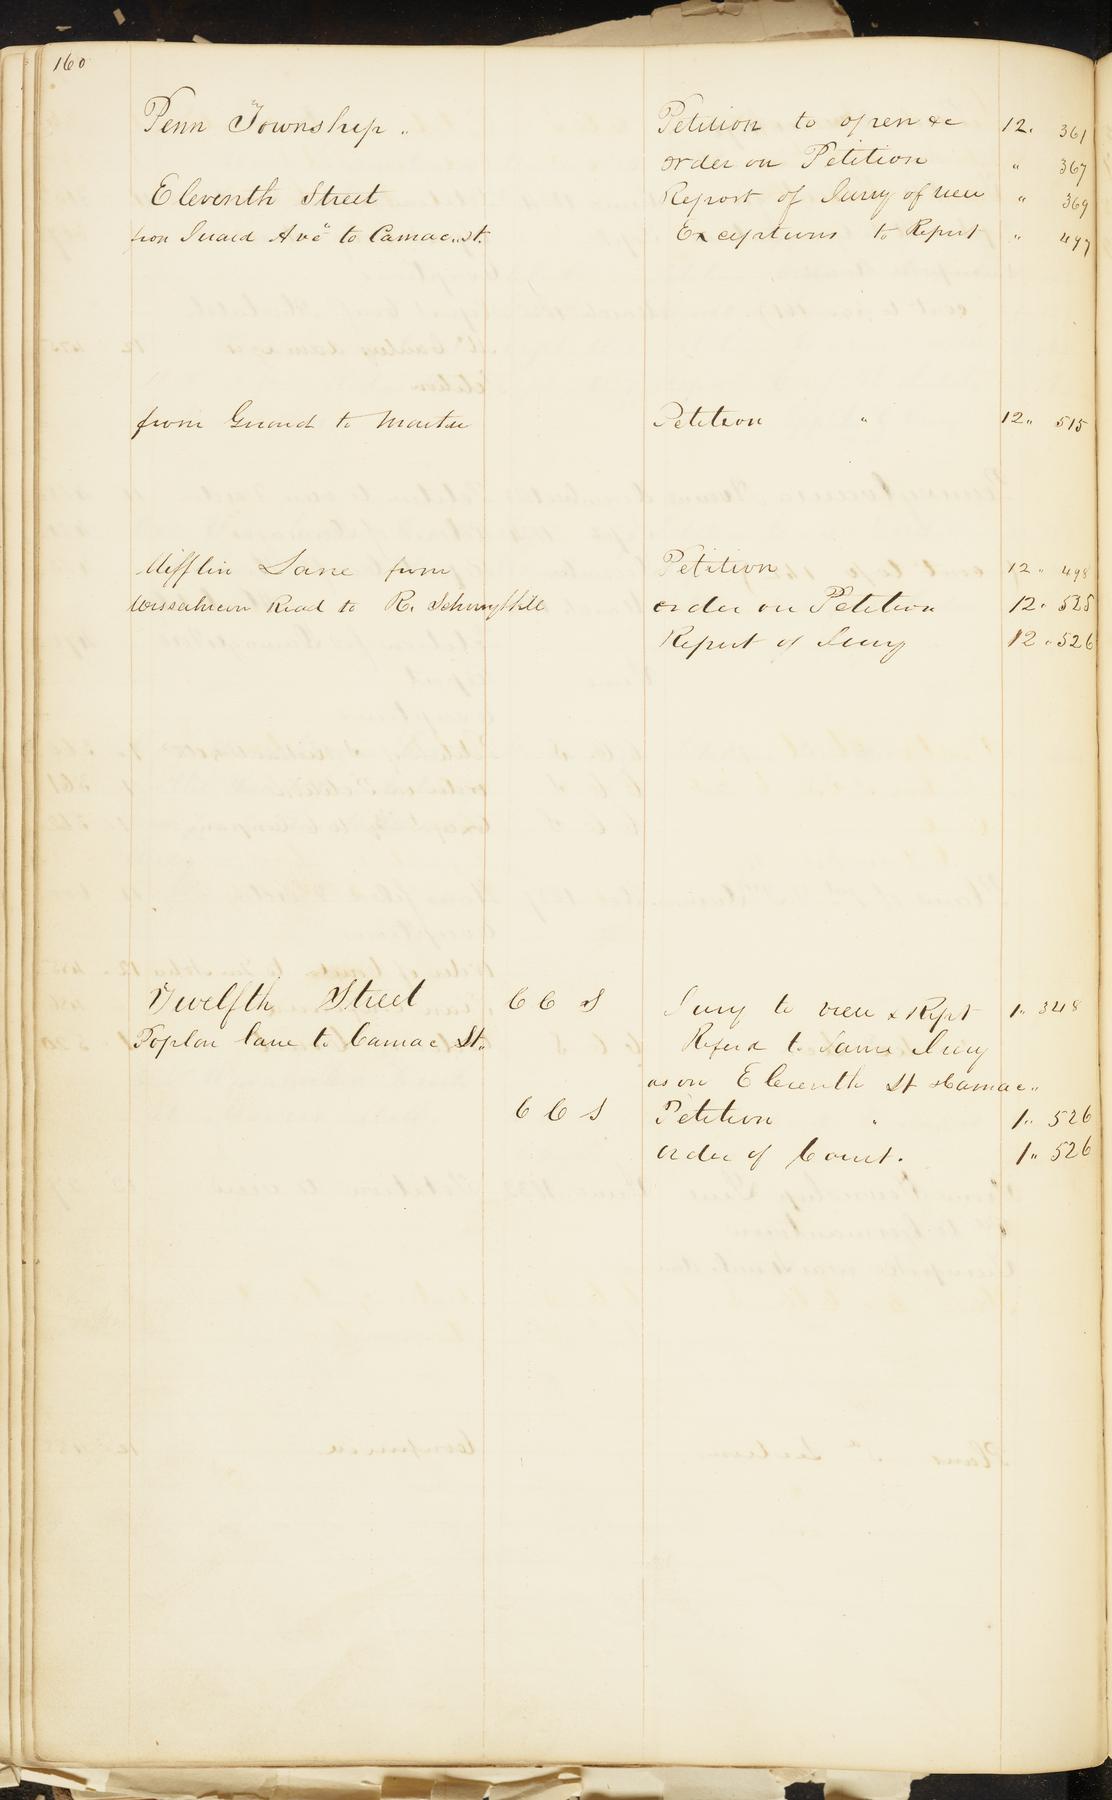 160
Penn Township ,, Petition to open &c 12. 361
order on Petition " 367
Eleventh Street Report of Jury of view " 369
from Girard Ave to Camac,, st. Exceptions to Report " 497
from Girard to Master Petition " 12,, 515
Mifflin Lane from Petition 12 ,, 498
Wissahicon Road to R. Schuylkill order on Petition 12. 525
Report of Jury 12 ,, 526
Twelfth Street C C S Jury to view & Rept 1,, 348
Poplar lane to Camac St,, Referd to Same Jury
as on Eleventh St Camac ,,
C C S Petition " 1,, 526
order of Court. 1,, 526